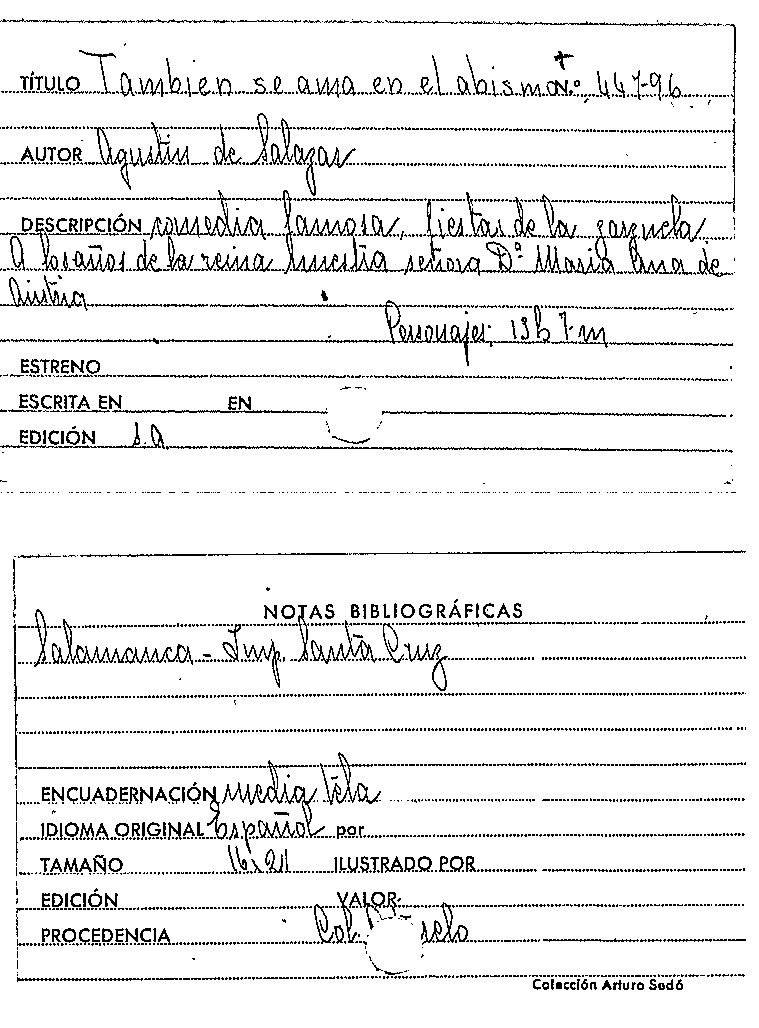 TÍTULO Tambien se ama en el abismo N.º 447-96
AUTOR Agustin de Salazar
DESCRIPCIÓN comedia famosa, fiestas de la zarzuela
A los años de la reina nuestra señora Dª Maria Ana de
Austria
Personajes: 13 h 7 m
ESTRENO
ESCRITA EN EN
EDICIÓN S.A
NOTAS BIBLIOGRÁFICAS
Salamanca - Imp. Santa Cruz
ENCUADERNACIÓN media tela
IDIOMA ORIGINAL Español por
TAMAÑO 16,21 ILUSTRADO POR
EDICIÓN VALOR
PROCEDENCIA Col.
Colección Arturo Sedó